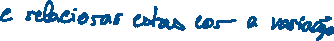 e relacionar estas com a variação